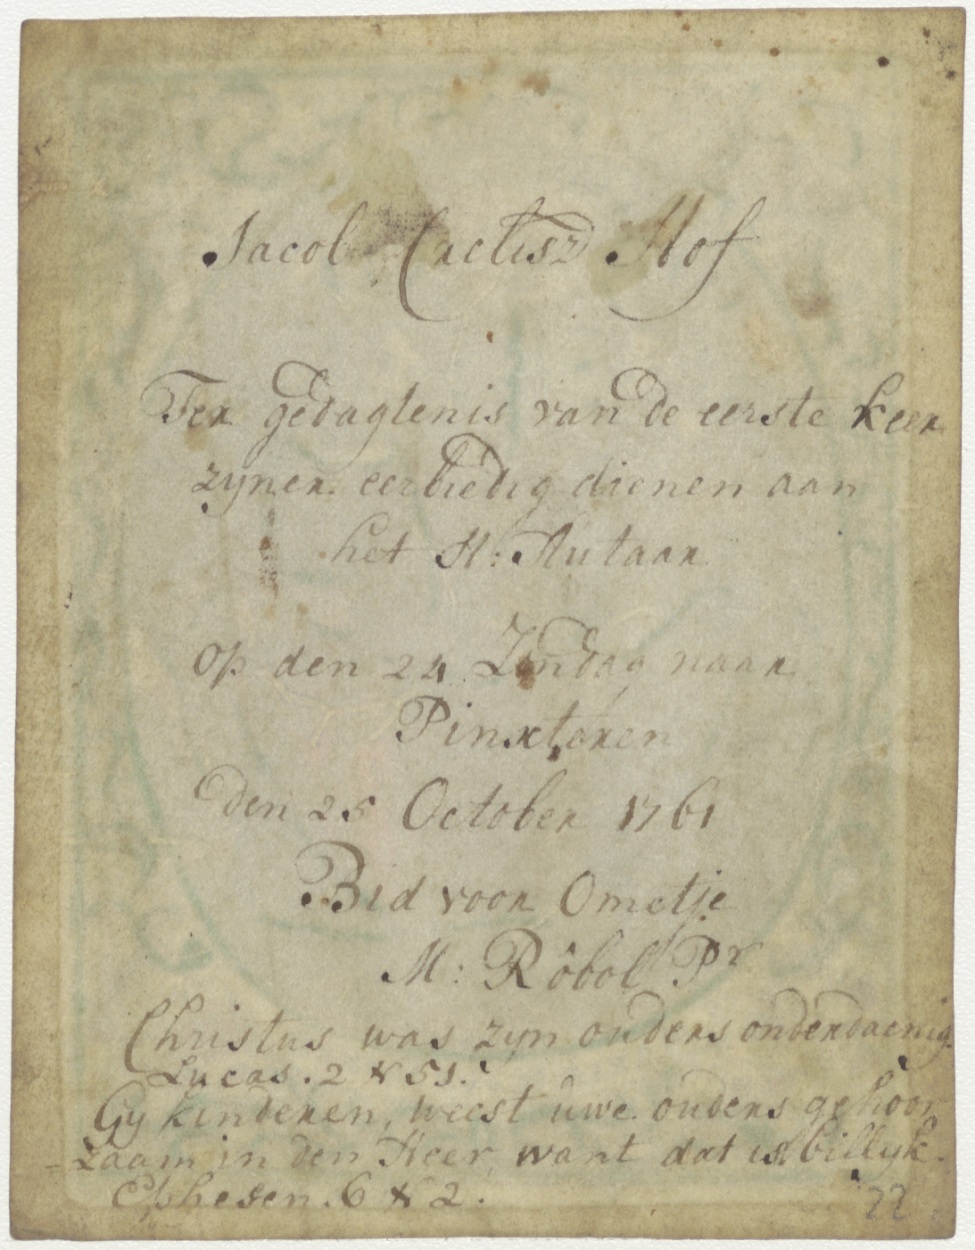 Jacob Crelisz Hof
Ter gedagtenis van de eerste keer
zyner eerbiedig dienen aan
het H: Autaar
op den 24 Zondag naar
Pinxteren
den 25 October 1761
Bid voor Ometje
M: Rôbol Pr
Christus was zyn ouders onderdaenig
Lucas. 2 ℣ 51.
Gy kinderen, weest uwe ouders gehoor
=zaam in den Heer, want dat is billyk.
Ephesen. 6 ℣ 2.
22